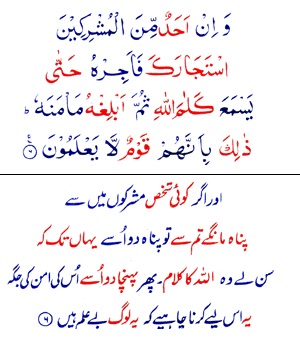 وَ اِنْ اَحَدٌ مِّنَ الْمُشْرِكِيْنَ
اسْتَجَارَكَ فَاَجِرْهُ حَتّٰى
يَسْمَعَ كَلٰمَ اللّٰهِ ثُمَّ اَبْلِغْهُ مَاْمَنَهٗ ؕ
ذٰلِكَ بِاَنَّهُمْ قَوْمٌ لَّا يَعْلَمُوْنَ ۶
اور اگر کوئی شخص مشرکوں میں سے
پناہ مانگے تم سے تو پناہ دو اُسے یہاں تک کہ
سن لے وہ اللہ کا کلام۔ پھر پہنچا دو اُسے اُس کی امن کی جگہ
یہ اس لیے کرنا چاہیے کہ یہ لوگ بے علم ہیں ۶